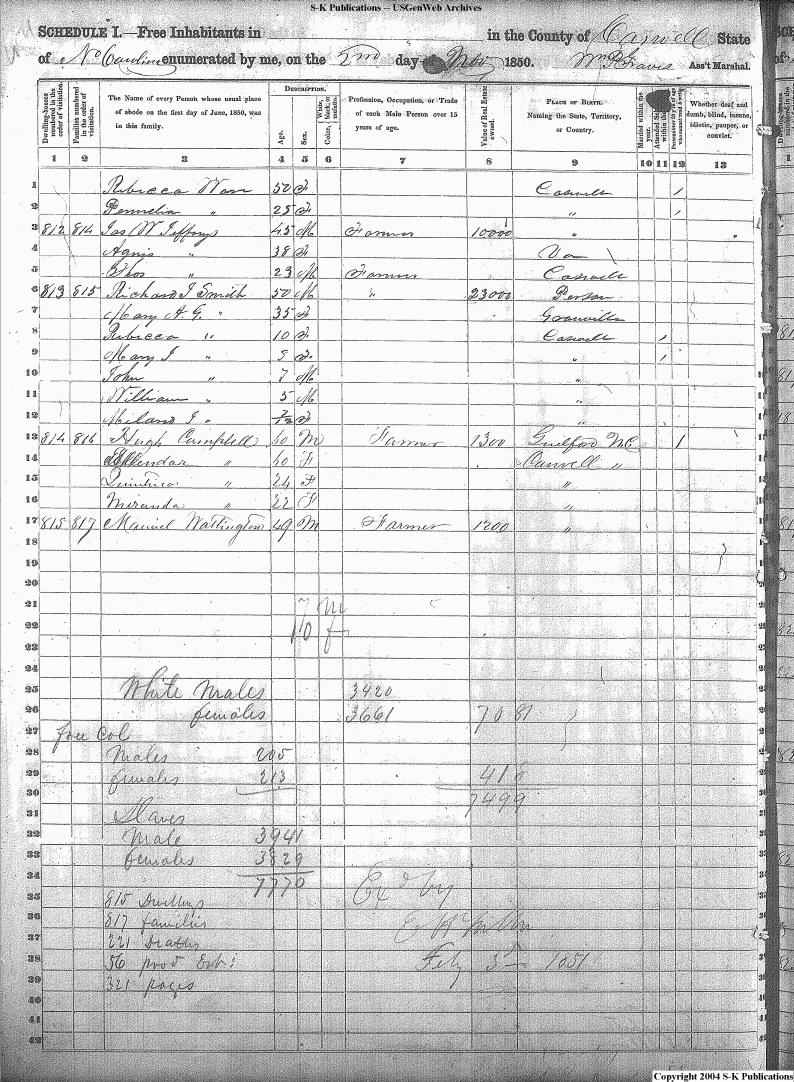 S-K Publications -- USGenWeb Archives
SCHEDULE I.—Free Inhabitants in in the County of Caswell State
of No Carolina enumerated by me, on the 2nd day of Nov 1850. Wm P. Graves Ass't Marshal.
Dwelling-houses numbered in the order of visitation.
Families numbered in the order of visitations.
The Name of every Person whose usual place of abode on the first day of June, 1850, was in this family.
DESCRIPTION.
Age.
Sex.
White, Color, black, or mulatto.
Profession, Occupation, or Trade of each Male Person over 15 years of age.
Value of Real Estate owned.
PLACE OF BIRTH. Naming the State, Territory, or Country.
Married within the year.
Whether deaf and dumb, blind, insane, idiotic, pauper, or convict.
1 2 3 4 5 6 7 8 9 10 11 12 13
1 Rebecca 50 F Caswell /
2 Permelia " 25 F " /
3 812 814 Jas W Jeffreys 45 M Farmer 10000 "
4 Agnis " 38 F Va
5 Thos " 23 M Farmer Caswell
6 813 815 Richard J Smith 50 M " 23000 Person
7 Mary A. G. " 35 F Granville
8 Rebecca " 10 F Caswell /
9 Mary J " 9 F " /
10 John " 7 M "
11 William " 5 M "
12 " 7/12 F "
13 814 816 Hugh Campbell 60 M Farmer 1300 Guilford N.C 1
14 " 60 F Caswell "
15 " 24 F "
16 Miranda " 22 F "
17 815 817 Watlington 49 M Farmer 1200 "
18
19
20
21 7 m
22 10 f
23
24
25 White Males 3420
26 females 3661 7081
27 free Col
28 Males 205
29 females 213 418
30 7499
31 Slaves
32 Male 3941
33 females 3829
34 7770
35 815 Dwellings Ex d by
36 817 families
37 221 Deaths
38 56 prod Est: Feby 3d 1851
39 321 pages
40
41
42
Copyright 2004 S-K Publications